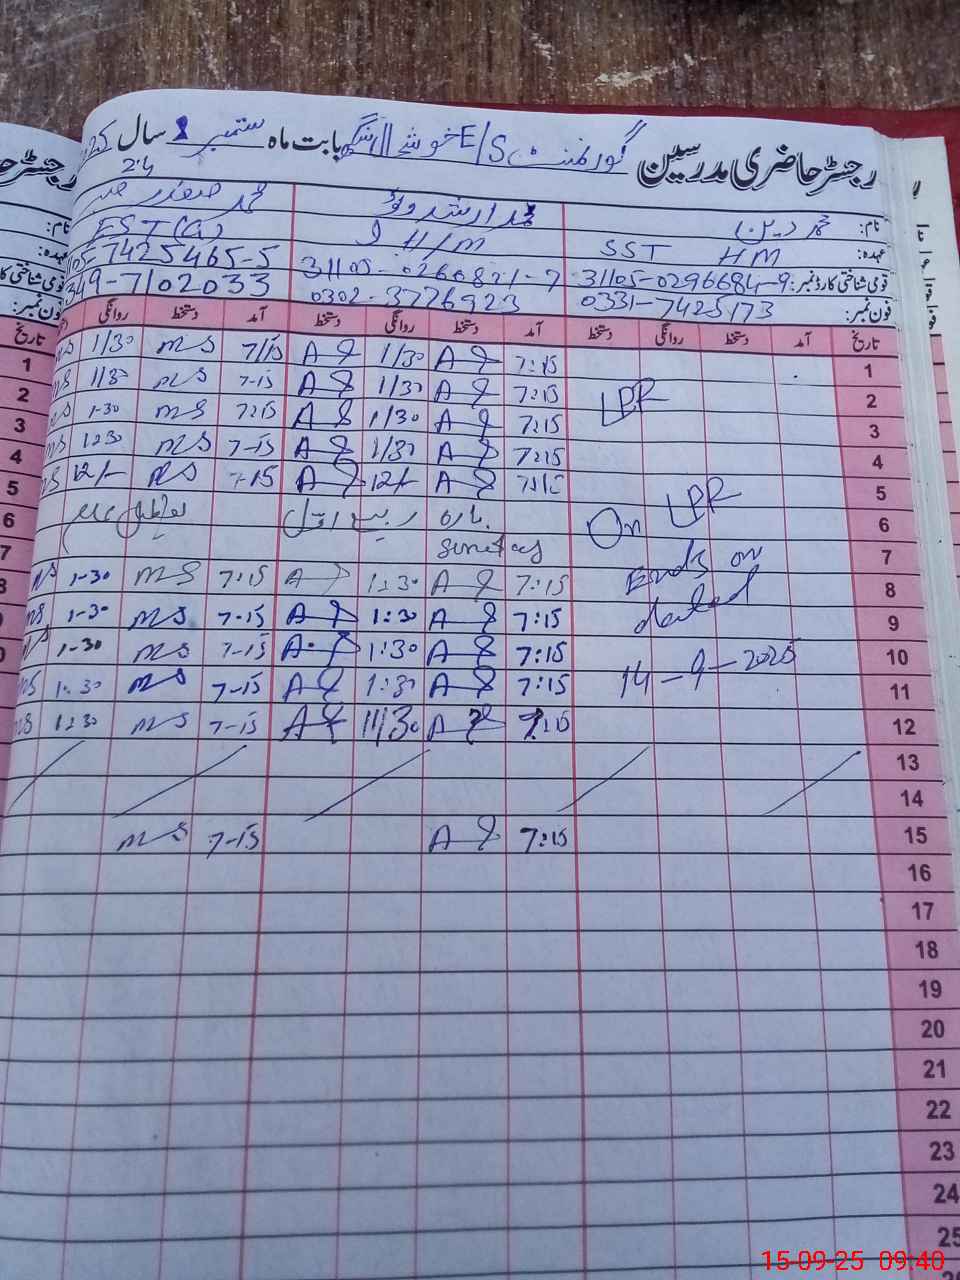 رجسٹر حاضری مدرسین گورنمنٹ E/S خوشحال بابت ماہ ستمبر سال 2025
نام: محمد دین محمد ارشد محمد صفدر
عہدہ: SST HM H/M EST(G)
قومی شناختی کارڈ نمبر: 31105-0296684-9 31105-0260821-7 105-7425465-5
فون نمبر: 0331-7425173 0302-3776923 349-7102033
تاریخ آمد دستخط روانگی دستخط آمد دستخط روانگی دستخط آمد دستخط روانگی تاریخ
1 7:15 A S 1/30 A S 7/15 MS 1/30 MS 1
2 LPR 7:15 A S 1/30 A S 7-15 MS 1/30 MS 2
3 7:15 A S 1/30 A S 7:15 MS 1-30 MS 3
4 7:15 A S 1/30 A S 7-15 MS 1:30 MS 4
5 7:15 A S 12/- A S 7-15 MS 12/- MS 5
6 On LPR بارہ ربیع اول تعطیل 6
7 Ends on Sunday 7
8 dated 7:15 A S 1:30 A S 7:15 MS 1-30 MS 8
9 7:15 A S 1:30 A S 7-15 MS 1-30 MS
10 14-9-2025 7:15 A S 1:30 A S 7-15 MS 1-30 MS
11 7:15 A S 1:30 A S 7-15 MS 1:30 MS
12 7:15 A S 11/30 A S 7-15 MS 1:30 MS
13
14
15 7:15 A S 7-15 MS
16
17
18
19
20
21
22
23
24
25
15-09-25 09:40